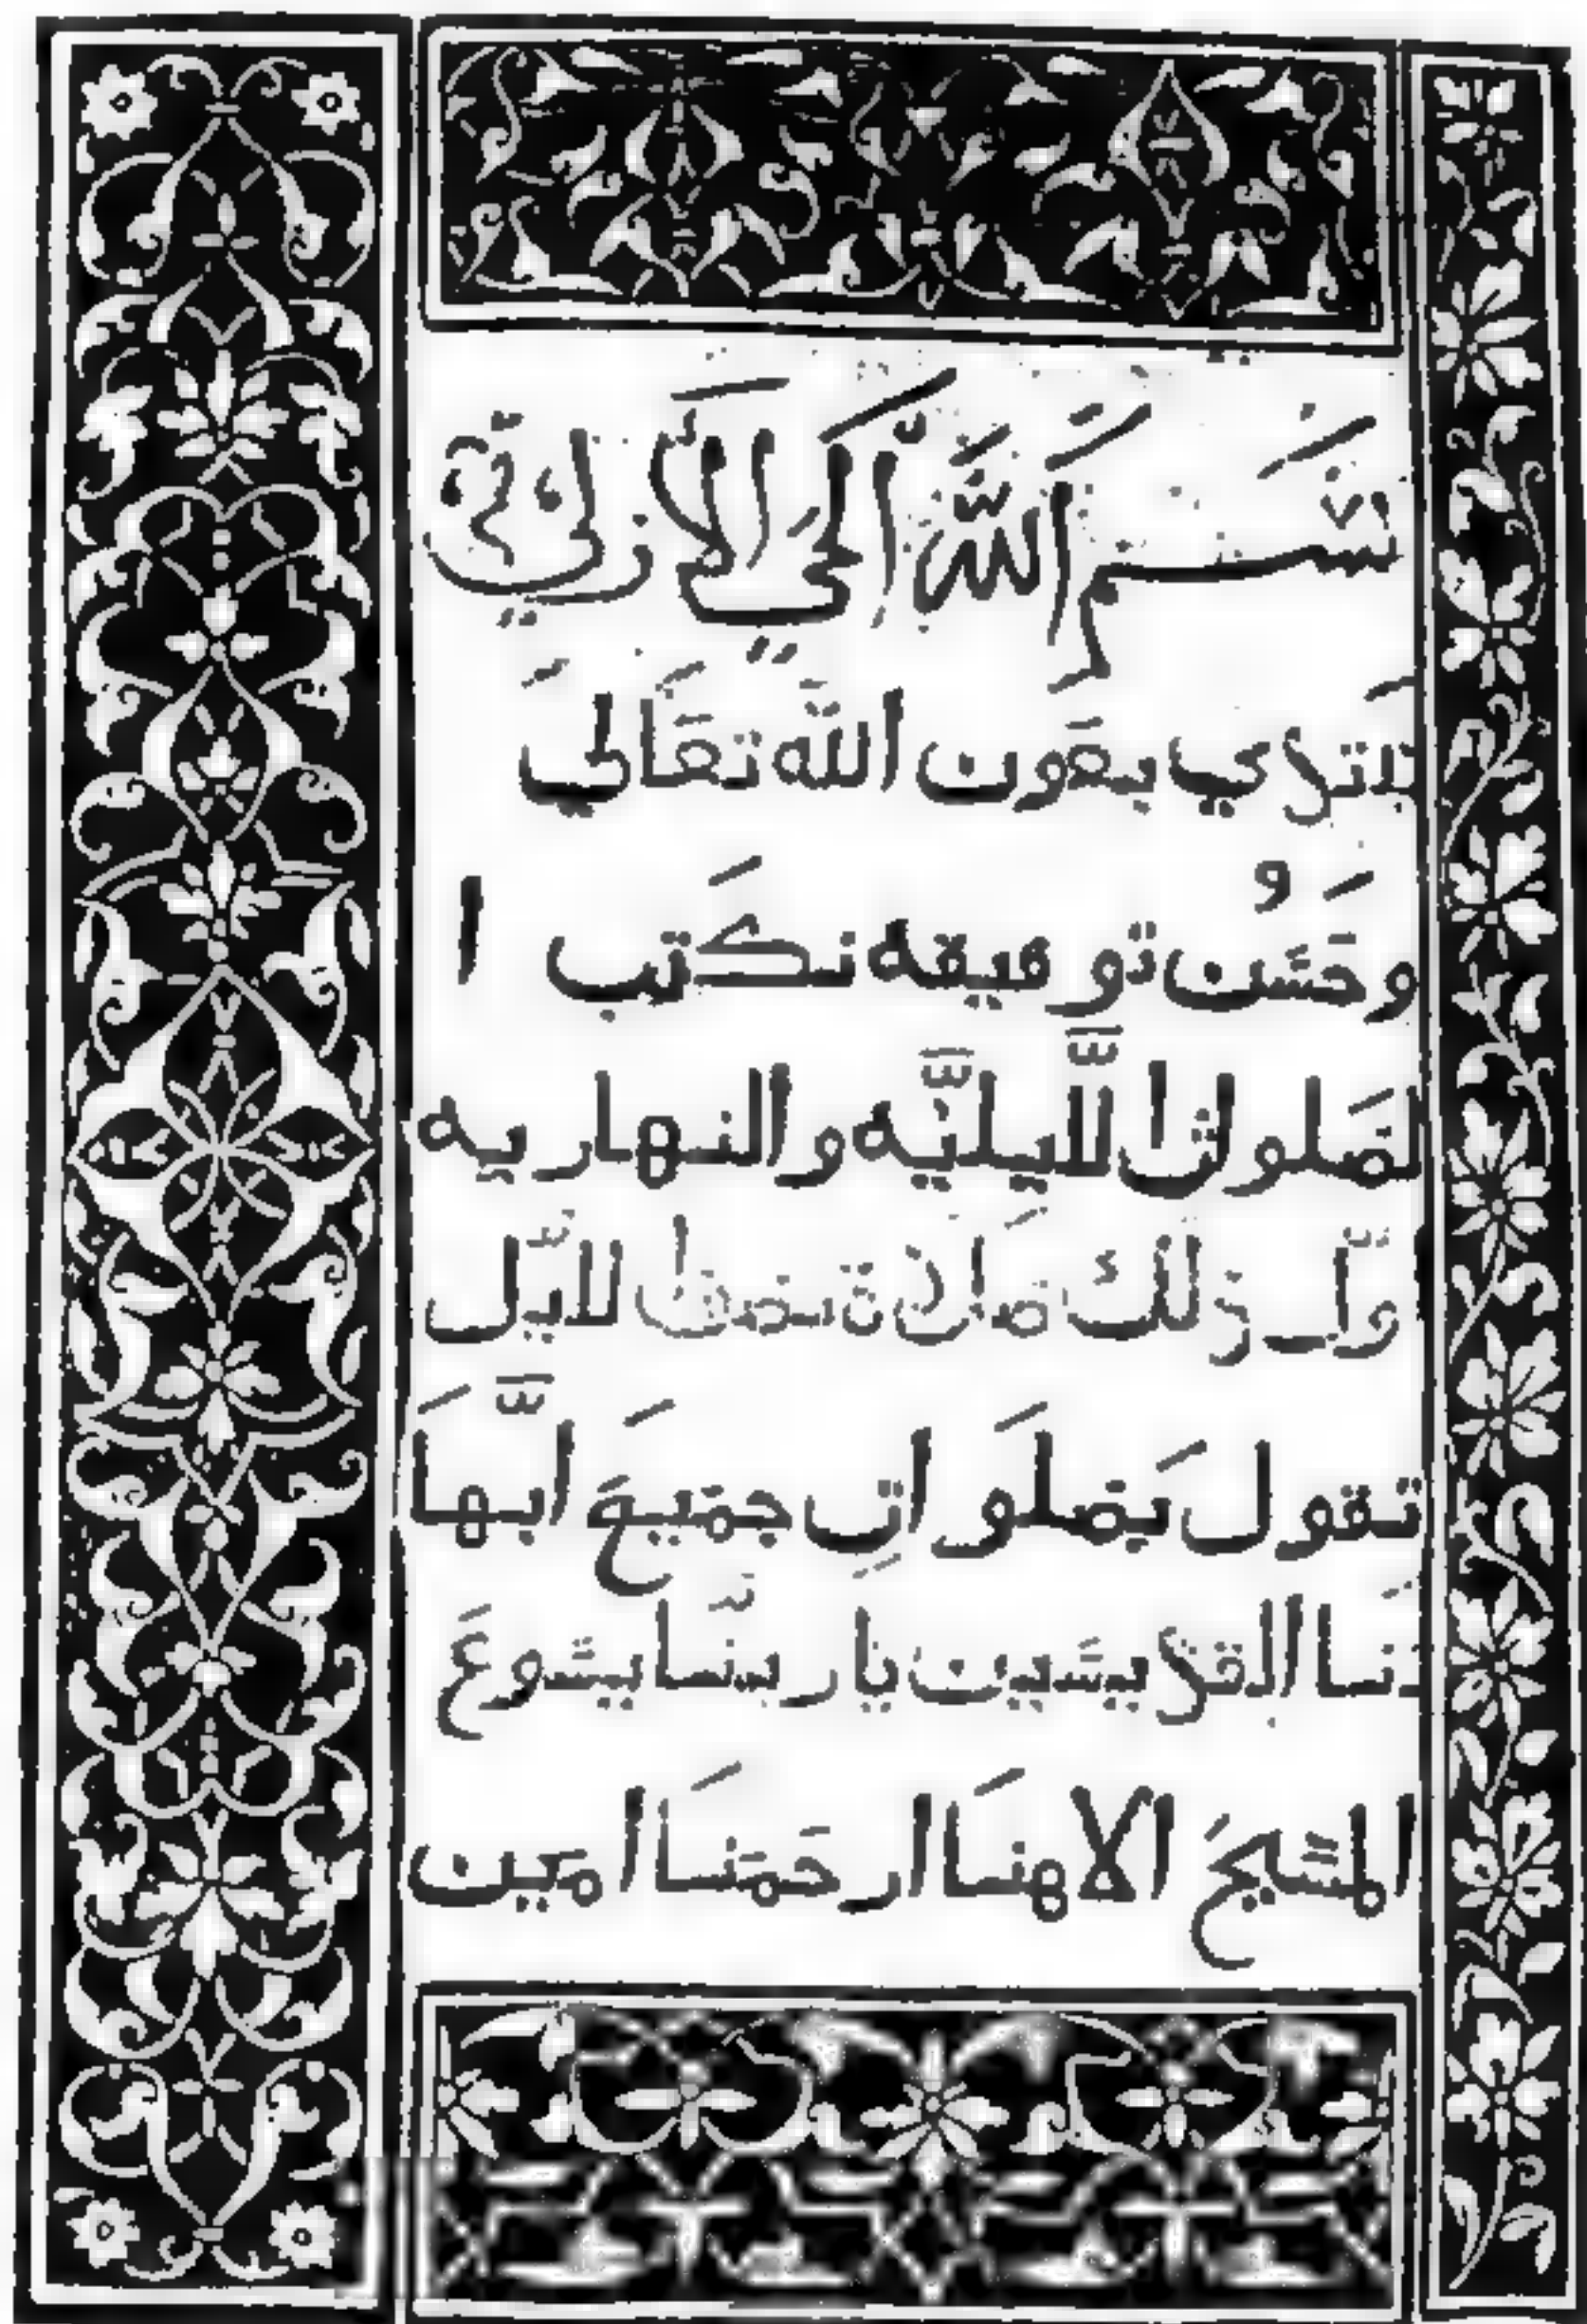 بسم الله الحي الازلي
نبتدي بعون الله تعالي
وحَسُن توفيقه نكَتب ا
لصَلوات اللَّيليَّه والنهاريه
وّل ذلك صلاة نصف الليّل
تقول بَصلَواتِ جمَيعَ ابَّهاَ
تنا القديسين ياربنّا يسوعَ
المسيحَ الاهنَا ارحَمنَا امين